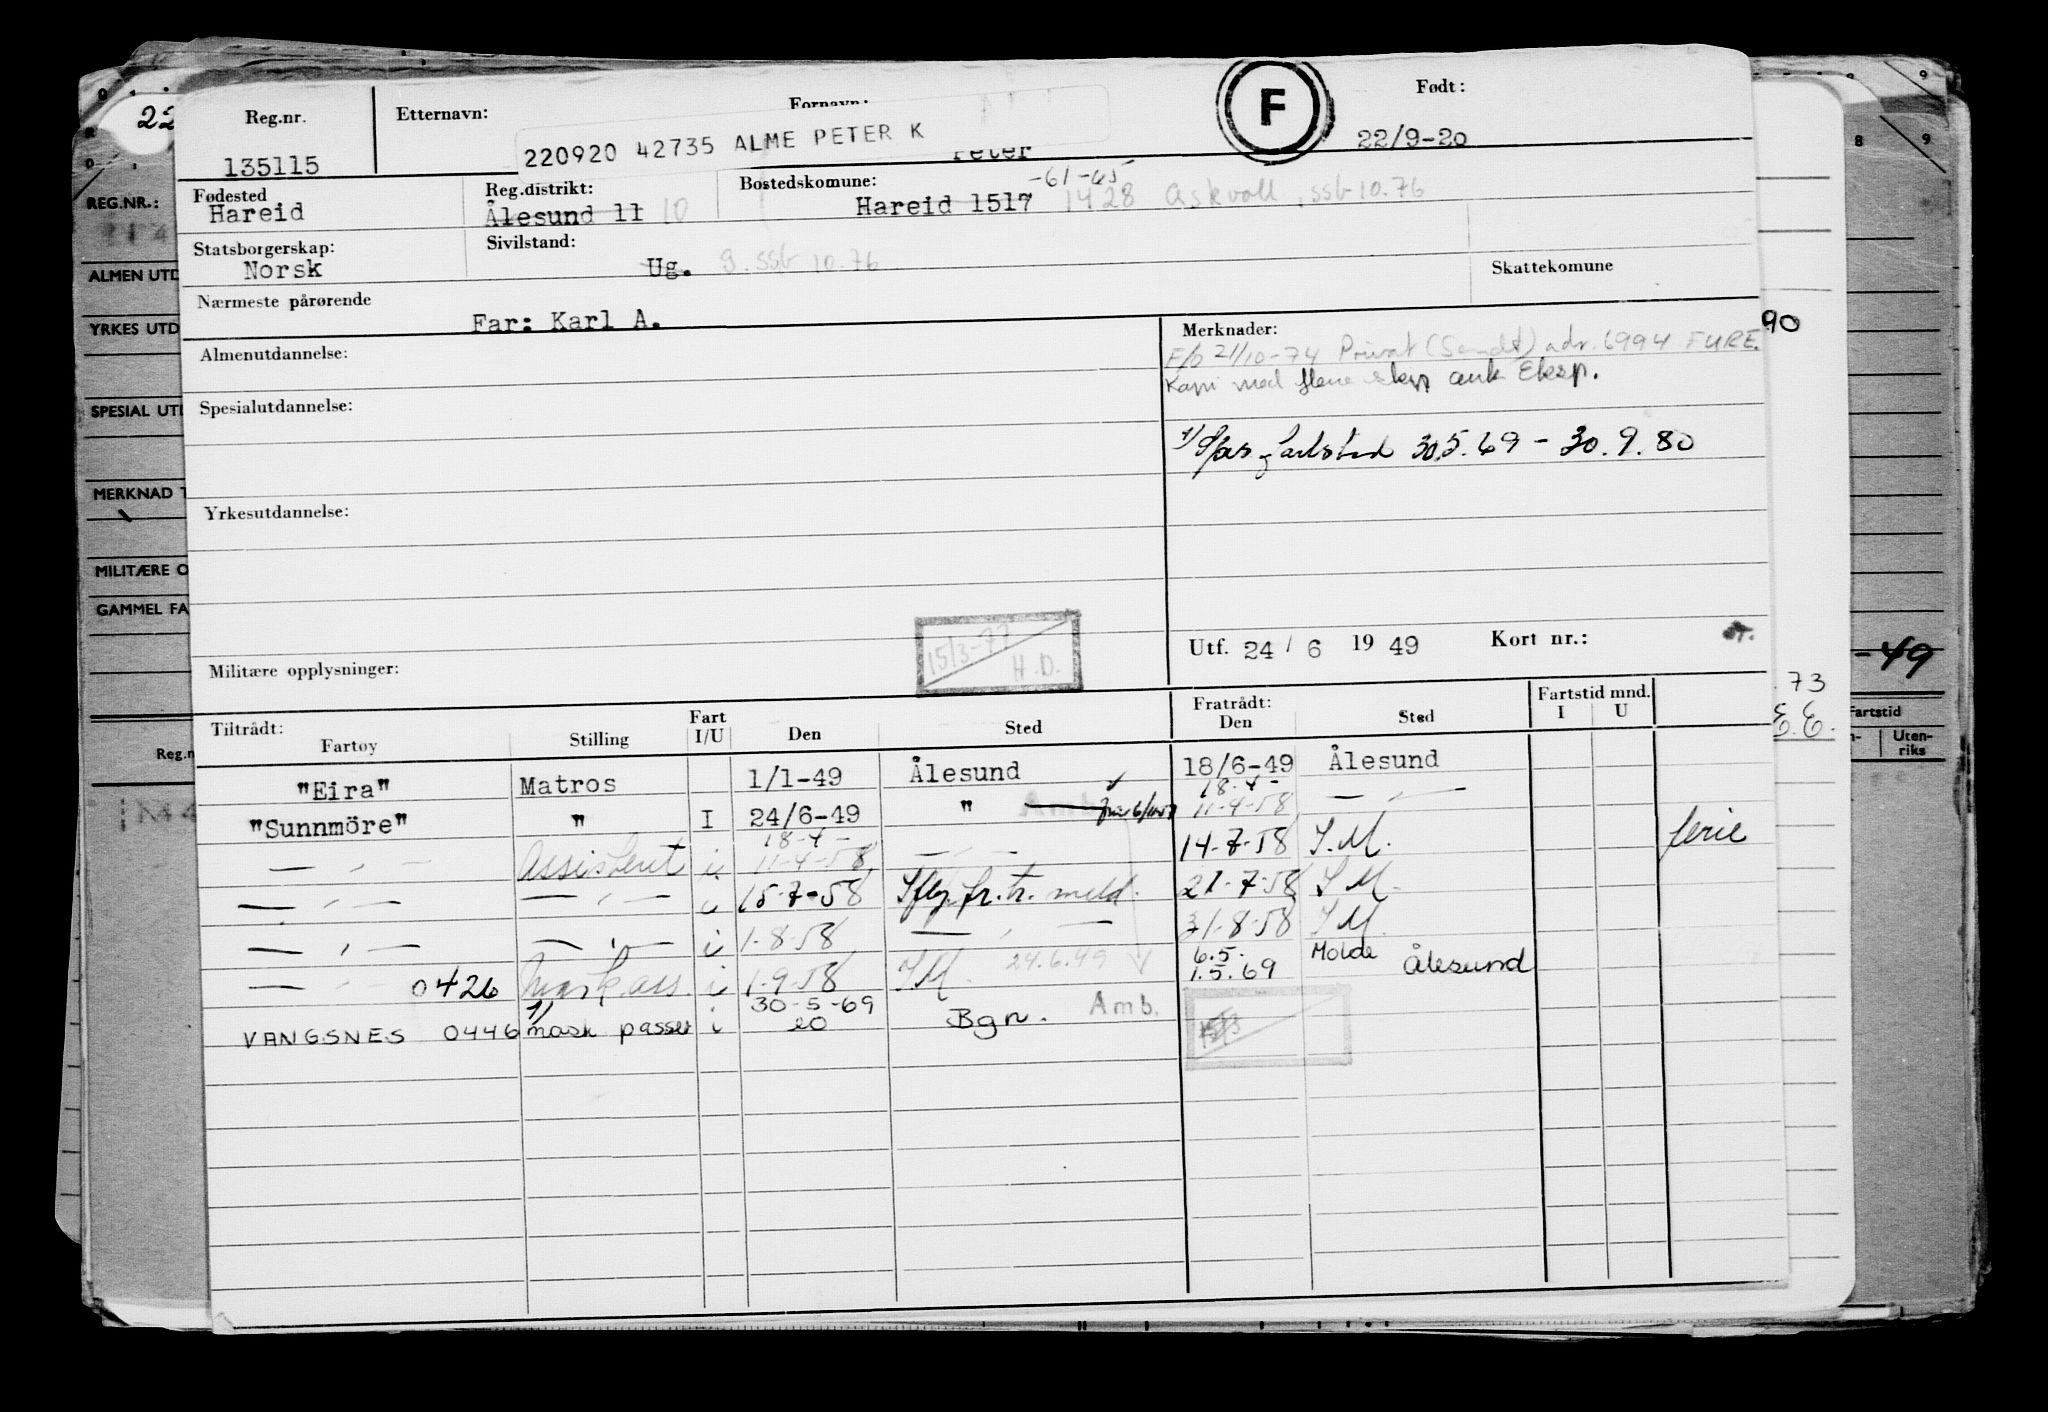 Reg.nr. Etternavn: Fornavn: F Født:
135115 220920 42735 ALME PETER K Peter 22/9-20
Fødested Reg.distrikt: Bostedskomune: -61-65
Hareid Ålesund 11 10 Hareid 1517 1428 Askvoll, ssb 10.76
Statsborgerskap: Sivilstand:
Norsk Ug. g. ssb 10.76 Skattekomune
Nærmeste pårørende
Far: Karl A.
Almenutdannelse: Merknader:
F/O 21/10-74 Privat (Sendt) adr. 6994 FURE.
Kapri med flere skip ank Eksp.
Spesialutdannelse:
1) 30.5.69 - 30.9.80
Yrkesutdannelse:
Militære opplysninger: 15/3-77 H.D. Utf. 24/6 1949 Kort nr.:
Tiltrådt: Fratrådt: Fartstid mnd.
Fartøy Stilling Fart I/U Den Sted Den Sted I U
"Eira" Matros 1/1-49 Ålesund 18/6-49 Ålesund
18-4-
"Sunnmöre" " I 24/6-49 " Amb. 11-4-58 — " —
18-4-
— " — Assistent i 11-4-58 — " — 14-7-58 I.M. ferie
— " — — " — i 15-7-58 Iflg. fr.tr. meld. 21-7-58 I M.
— " — — " — i 1-8-58 — " — 31-8-58 I M.
— " — 0426 Mask.ass. i 1-9-58 I M. 24.6.49 6.5. 1.5.69 Molde Ålesund
VANGSNES 0446 1) mask passer i 30-5-69 20 Bgn. Amb. 15/3
22
REG.NR.:
ALMEN UTD
YRKES UTD
SPESIAL UTD
MERKNAD T
MILITÆRE O
GAMMEL FA
Reg.n
90
-49
.73
E.E.
Fartstid
Uten-
riks